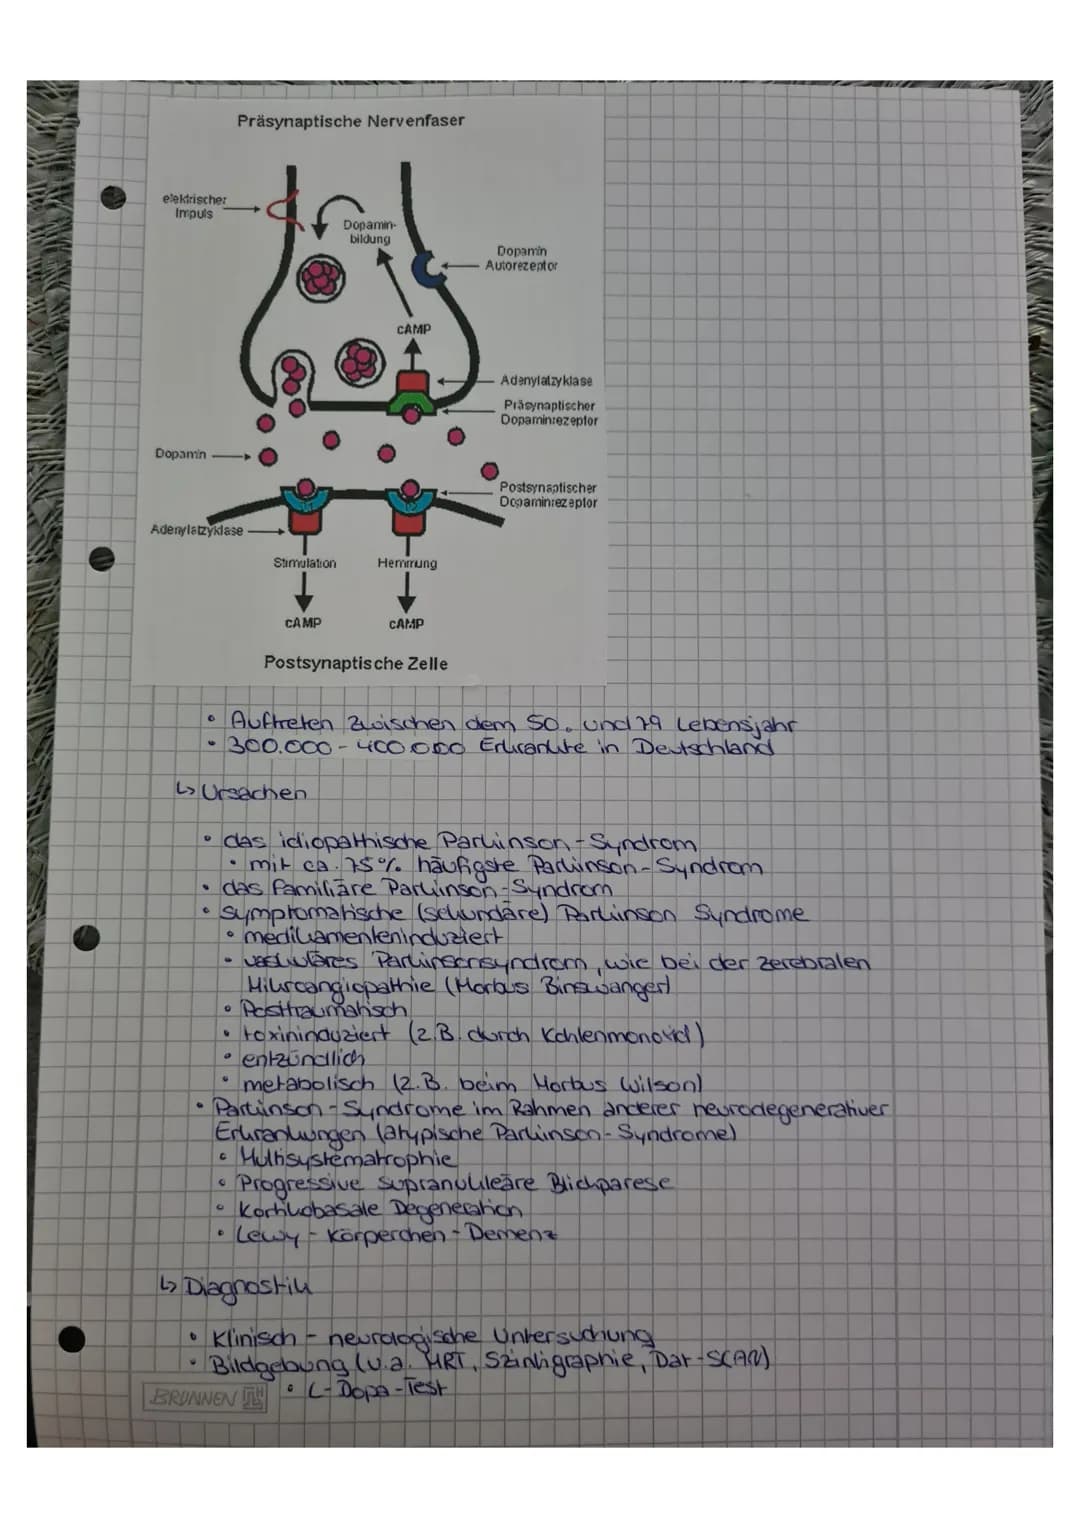 Präsynaptische Nervenfaser
elektrischer
Impuls
Dopamin-
bildung
Dopamin
Autorezeptor
cAMP
Adenylatzyklase
Präsynaptischer
Dopaminrezeptor
Dopamin
Postsynaptischer
Dopaminrezeptor
D1
D2
Adenylatzyklase
Stimulation
Hemmung
cAMP
cAMP
Postsynaptische Zelle
• Auftreten zwischen dem 50. und 79 Lebensjahr
• 300.000 - 400.000 Erkrankte in Deutschland
↳ Ursachen
• das idiopathische Parkinson - Syndrom
• mit ca. 75 % häufigste Parkinson - Syndrom
• das familiäre Parkinson - Syndrom
• symptomatische (sekundäre) Parkinson Syndrome
• medikamenteninduziert
• vaskuläres Parkinsonsyndrom, wie bei der zerebralen
Mikroangiopathie (Morbus Binswanger)
• Posttraumatisch
• toxininduziert (z.B. durch Kohlenmonoxid)
• entzündlich
• metabolisch (z.B. beim Morbus Wilson)
• Parkinson - Syndrome im Rahmen anderer neurodegenerativer
Erkrankungen (atypische Parkinson - Syndrome)
• Multisystematrophie
• Progressive supranukleäre Blickparese
• Kortikobasale Degeneration
• Lewy - Körperchen - Demenz
↳ Diagnostik
• Klinisch - neurologische Untersuchung
• Bildgebung (u.a. MRT, Szintigraphie, Dat - SCAN)
• L - Dopa - Test
BRUNNEN